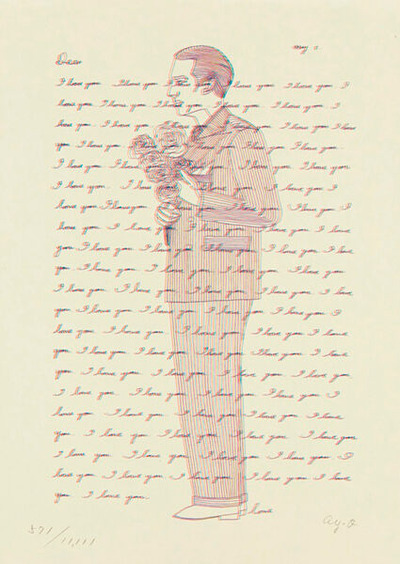 may
Dear
I love you I love you I love you I love you I
love you I love you I love you I love you I
love you I love you I love you I love you I love
you I love you I love you I love you
I love you I love you I love you I love you
I love you I love you I love you I love you I
love you I love you I love you I love you I
love you I love you I love you I love you
you I love you I love you I love you I love
you I love you I love you I love you I love you
I love you I love you I love you I love you I love
you I love you I love you I love you I love you I
love you I love you I love you I love you I love
you I love you I love you I love you I love
you I love you I love you I love you I love you
I love you I love you I love you I love you I
love you I love you I love you I love you I love
you I love you I love you I love you I love you
I love you I love you I love you I love you I
love you I love you I love you I love you I love
you I love you
love
571/11,111
Ay-O